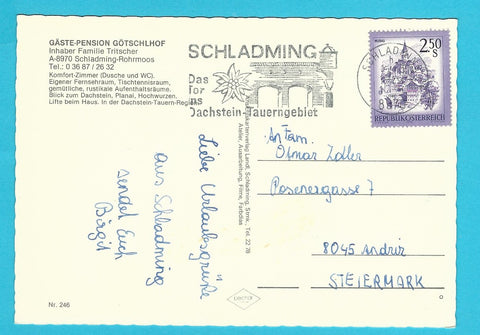 GÄSTE-PENSION GÖTSCHLHOF
Inhaber Familie Tritscher
A-8970 Schladming-Rohrmoos
Tel.: 0 36 87 / 26 32
Komfort-Zimmer (Dusche und WC).
Eigener Fernsehraum, Tischtennisraum,
gemütliche, rustikale Aufenthaltsräume.
Blick zum Dachstein, Planai, Hochwurzen.
Lifte beim Haus. In der Dachstein-Tauern-Region.
SCHLADMING
Das
Tor
ins
Dachstein-Tauerngebiet
SCHLADMING
2.50
S
REPUBLIK ÖSTERREICH
Liebe Urlaubsgrüße
aus Schladming
sendet Euch
Birgit
Ansichtskartenverlag Landl, Schladming, Stmk., Tel. 22 78
Atelier, Ausarbeitung, Filme, Farbdias
An Fam.
Otmar Zdler
Posenergasse 7
8045 Andritz
STEIERMARK
Nr. 246